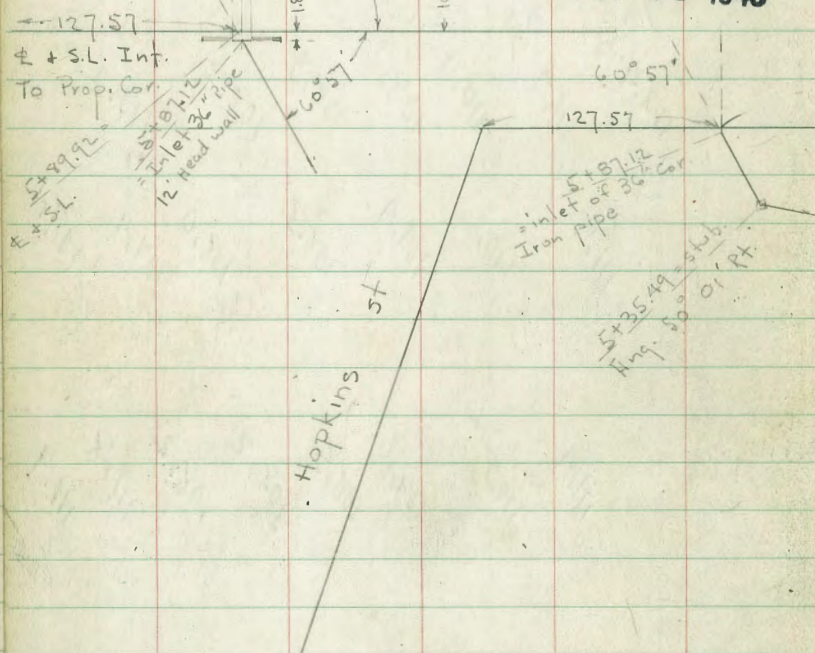 127.57
℄ & S.L. Int.
To Prop. Cor.
5+89.92 =
℄ & S.L.
5+87.12
= Inlet 36" Pipe
12' Head wall
60° 57'
60° 57'
127.57
5+87.12
= inlet of 36" Cor.
Iron pipe
5+35.49 = stub
Ang. 50° 01' Rt.
Hopkins St